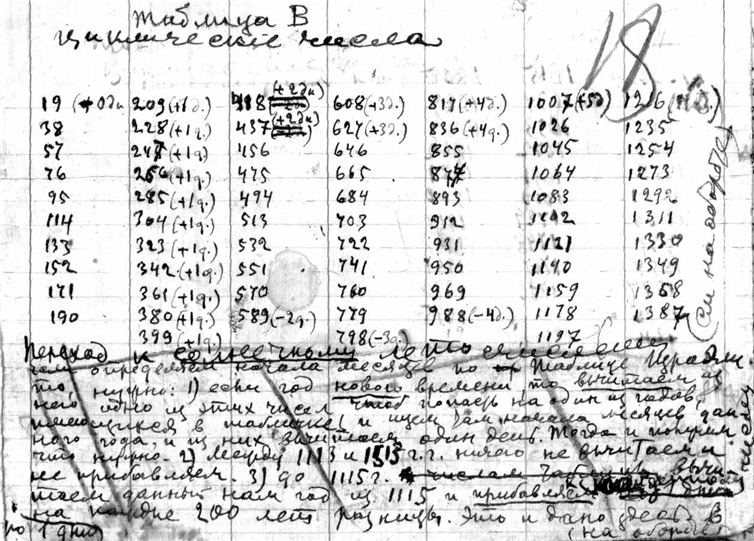 Таблица В
Циклические числа
18
19 (+0дн 209 (+1д.) 418 (+2дн) 608 (+3д.) 817 (+4д.) 1007 (+5д) 1216
38 228 (+1д.) 437 (+2дн) 627 (+3д.) 836 (+4д.) 1026 1235
57 247 (+1д) 456 646 855 1045 1254
76 266 (+1д.) 475 665 874 1064 1273
95 285 (+1д.) 494 684 893 1083 1292
114 304 (+1д.) 513 703 912 1102 1311
133 323 (+1д.) 532 722 931 1121 1330
152 342 (+1д.) 551 741 950 1140 1349
171 361 (+1д.) 570 760 969 1159 1368
190 380 (+1д.) 589 (-2д.) 779 988 (-4д.) 1178 1387
399 (+1д.) 798 (-3д.) 1197
(см на обороте)
Переход к солнечному летосчислению
чем определяем начала месяцев по таблице
то, нужно: 1) если год нового времени то вычитаем из
него одно из этих чисел чтоб попасть на один из годов,
имеющихся в таблице и ищем там начала месяцев дан-
ного года, и из них вычитаем один день. Тогда и получим
что нужно. 2) Между 1113 и 1515 г.г. ничего не вычитаем и
не прибавляем. 3) до 1115 г. числам вычи
таем данный нам год из 1115 и прибавляем
на каждые 200 лет разницы. Это и дано здесь в
по 1 дню (на обороте)